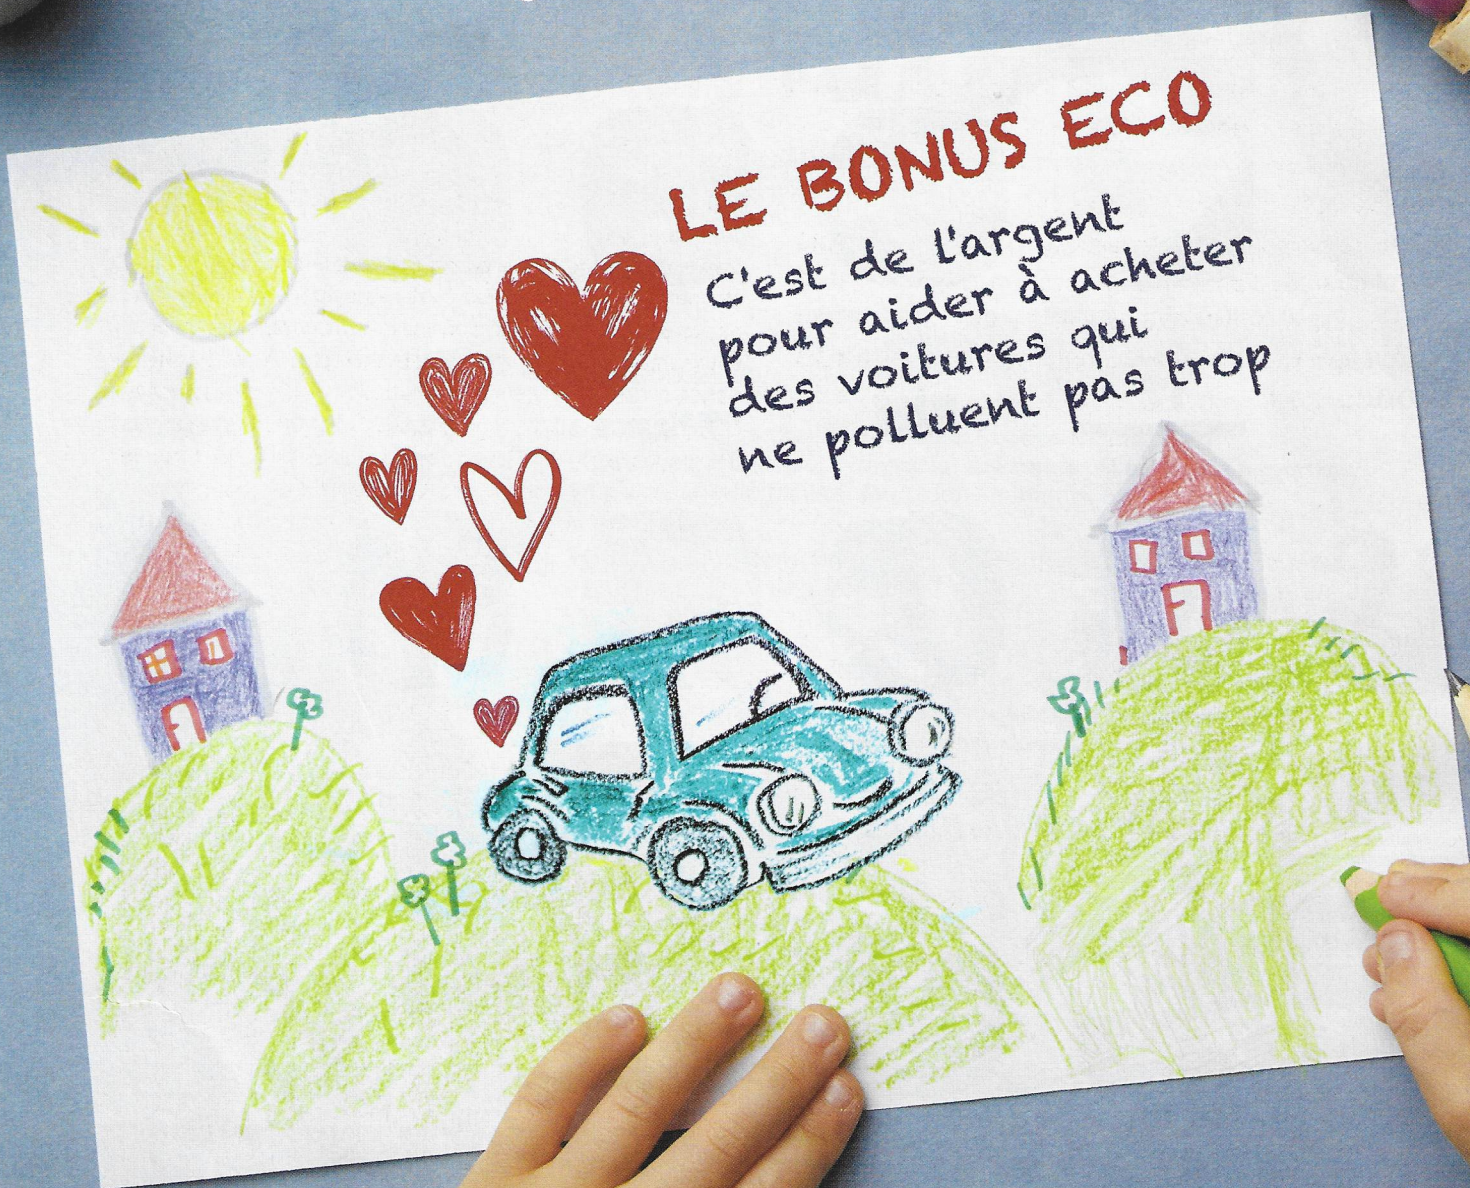 LE BONUS ECO
C'est de l'argent
pour aider à acheter
des voitures qui
ne polluent pas trop